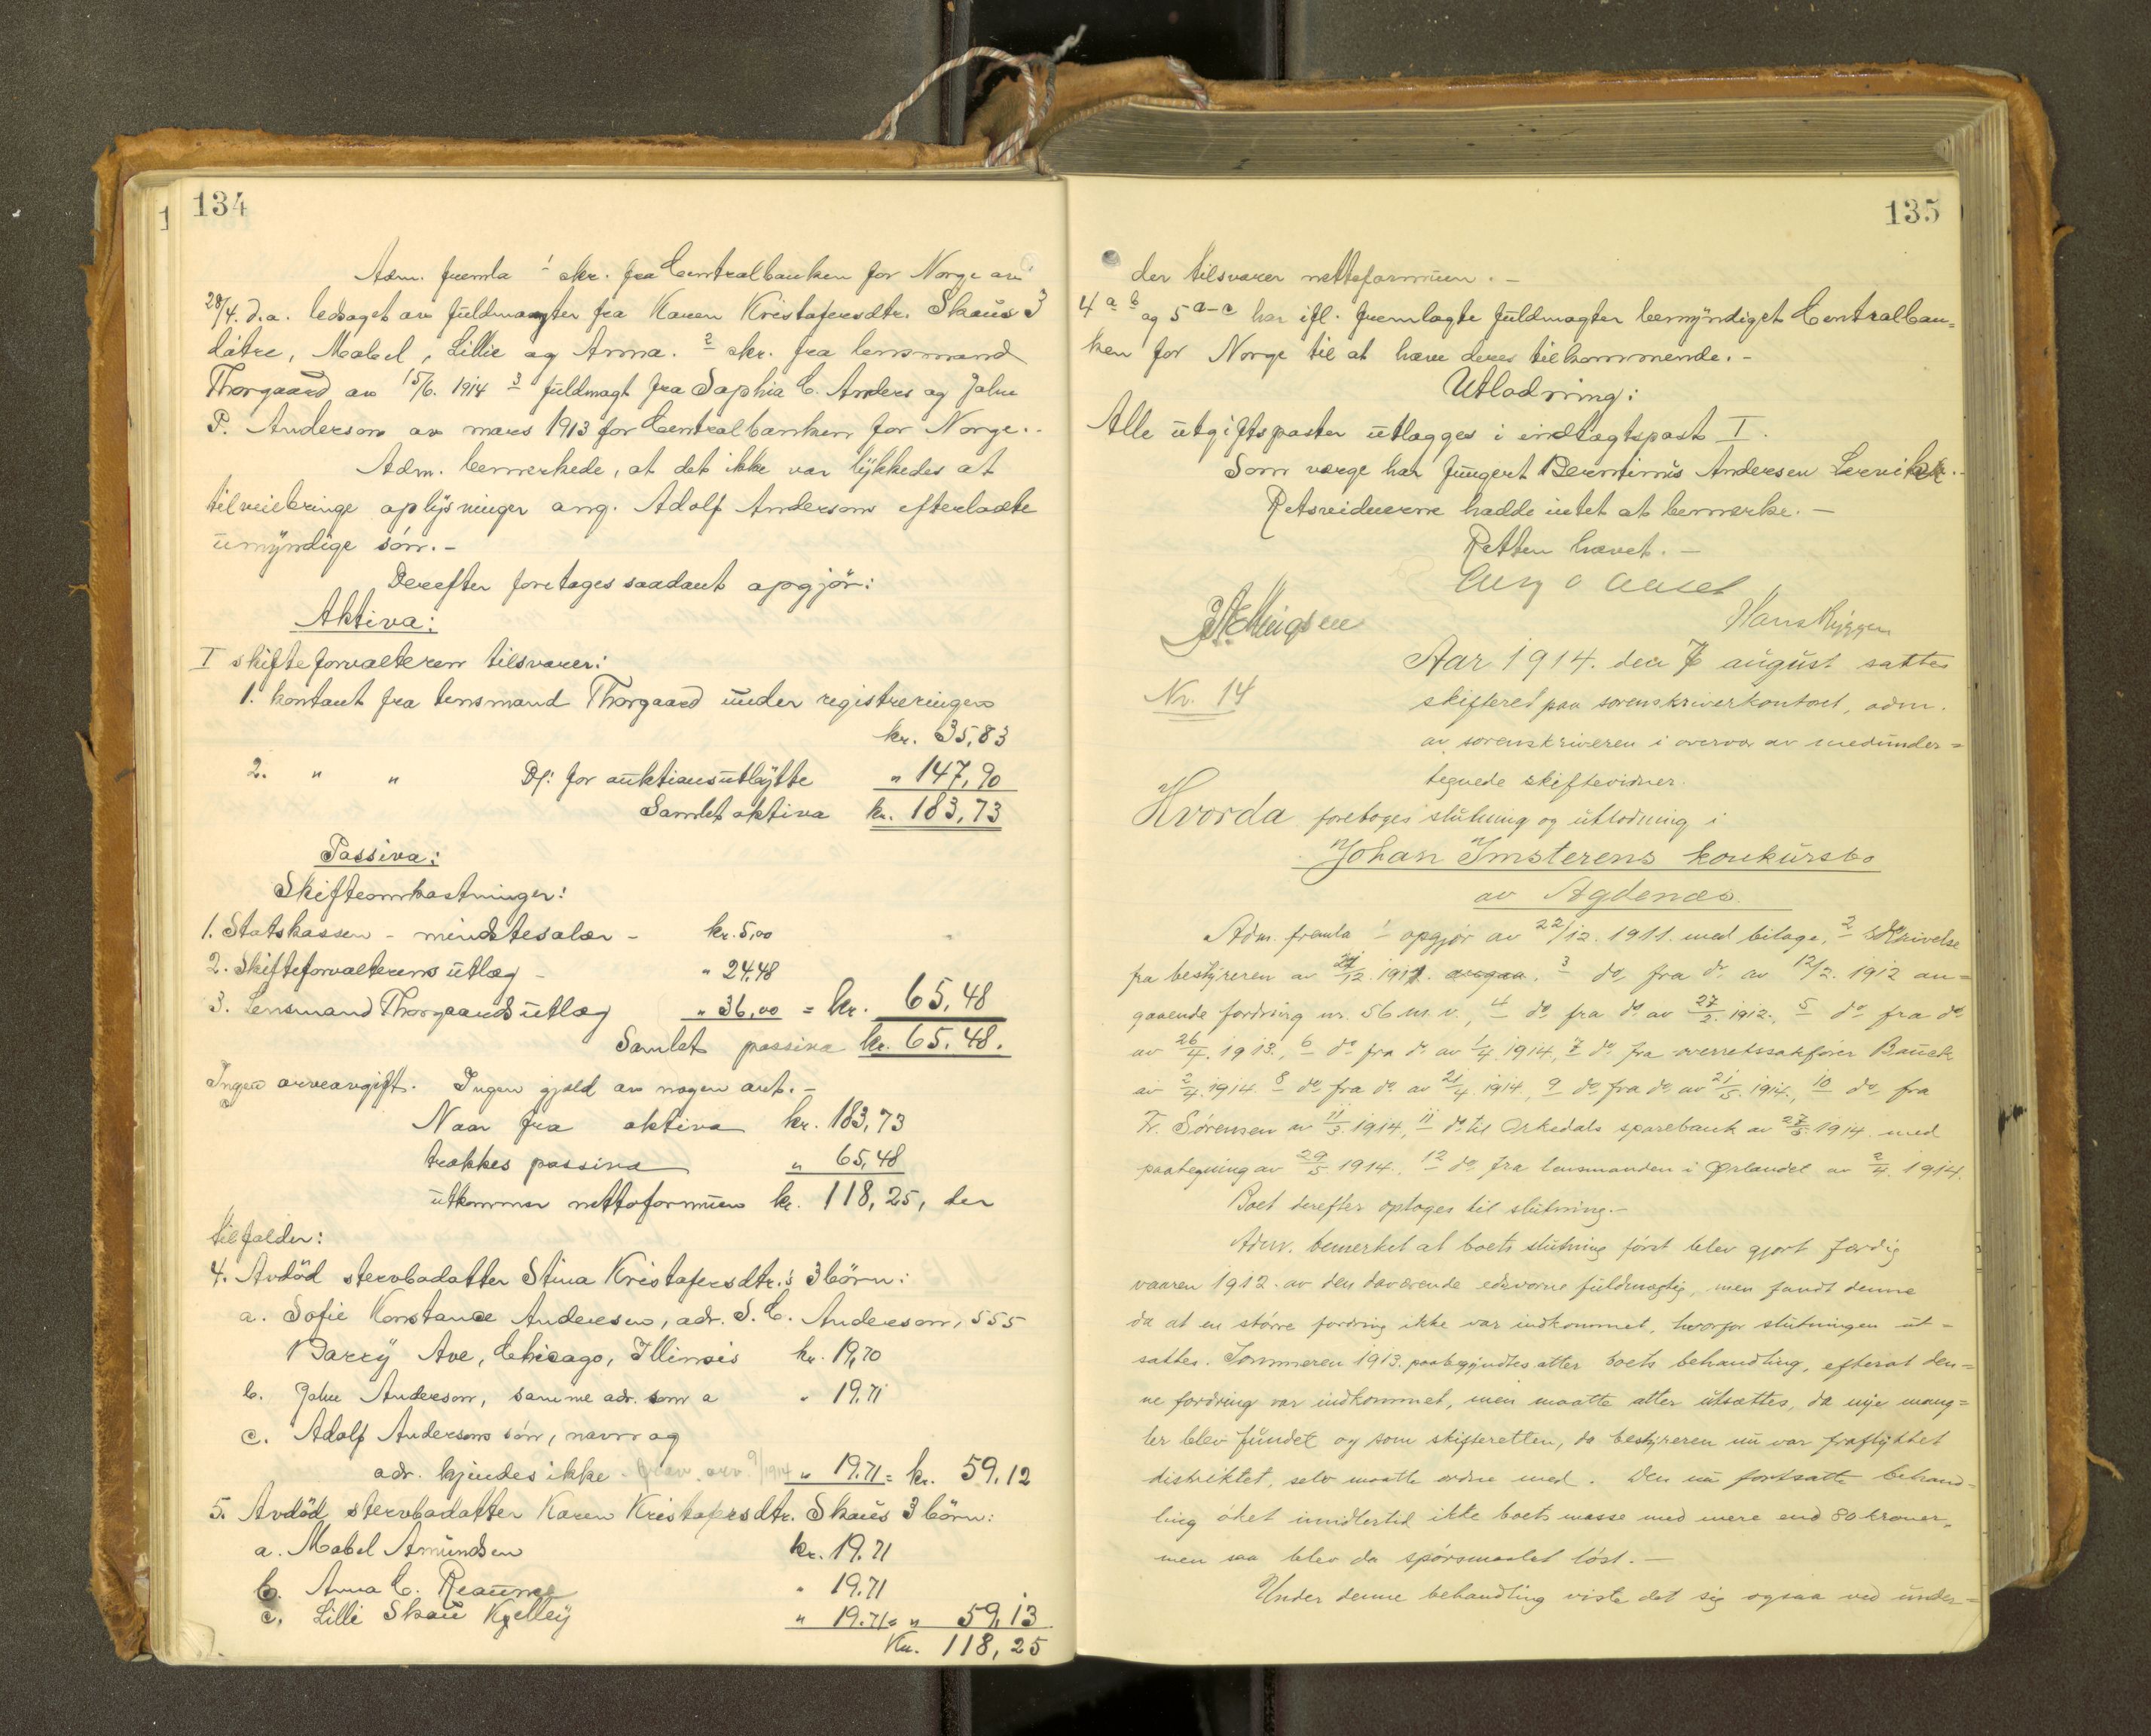 134
Adm. fremla 1 skr. fra Centralbanken for Norge av
28/4. d.a. ledsaget av fuldmagter fra Karen Kristofersdtr. Skaus 3
døtre, Mabel, Lillie og Anna. 2 skr. fra lensmand
Thorgaard av 15/6. 1914 3 fuldmagt fra Sophia C. Anders og John
P. Anderson av mars 1913 for Centralbanken for Norge.-
Adm. bemerkede, at det ikke var lykkedes at
tilveiebringe oplysninger ang. Adolf Andersons efterladte
umyndige søn.-
Derefter foretages saadant opgjør:
Aktiva:
I skifteforvalteren tilsvarer:
1. kontant fra lensmand Thorgaard under registreringen
kr. 35,83
2. " " Do: for auktionsutbytte " 147,90
Samlet aktiva kr. 183,73
Passiva:
Skifteomkostninger:
1. Statskassen - mindstesalær - kr. 5,00
2. Skifteforvalterens utlæg - " 24,48
3. Lensmand Thorgaards utlæg " 36,00 = kr. 65,48
Samlet passiva kr. 65,48.
Ingen arveavgift. Ingen gjæld av nogen art.-
Naar fra aktiva kr. 183,73
trækkes passiva " 65,48
utkommer nettoformuen kr. 118,25, der
tilfalder:
4. Avdød stervbodatter Stina Kristofersdtr.'s 3 børn:
a. Sofie Konstance Andersen, adr. S. C. Anderson, 555
Barry Ave, Chicago, Illinois kr. 19,70
b. John Anderson, samme adr. som a " 19.71
c. Adolf Andersons søn, navn og
adr. kjendes ikke 9/1914 " 19.71 = kr. 59,12
5. Avdød stervbodatter Karen Kristofersdtr. Skaus 3 børn:
a. Mabel Amundsen kr. 19.71
b. Anna C. Reaume " 19.71
c. Lilli Skau Kjelley " 19.71 = " 59,13
Kr. 118,25
135
der tilsvarer nettoformuen.-
4 a b og 5 a-c har ifl. fremlagte fuldmagter bemyndiget Centralban=
ken for Norge til at hæve deres tilkommende.-
Utlodning:
Alle utgiftsposter utlægges i indtægtspost I.
Som værge har fungert Berntinus Andersen Lervik.-
Retsvidnerne hadde intet at bemerke.-
Retten hævet.-
Hans Ryggen
Nr. 14
Aar 1914. den 7 august sattes
skifteret paa sorenskriverkontoret, adm.
av sorenskriveren i overvær av medunder=
tegnede skiftevidner.
Hvorda foretoges slutning og utlodning i
Johan Imsterens konkursbo
av Agdenæs.
Adm. fremla 1 opgjør av 22/12. 1911. med bilage, 2 skrivelse
fra bestyreren av 12. 1911. 3 do. fra do. av 12/2. 1912 an=
gaaende fordring nr. 56 m. v., 4 do. fra do. av 27/2. 1912., 5 do fra do
av 26/4. 1913., 6 do fra do av 1/4 1914, 7 do. fra overretssakfører Bauck
av 2/4. 1914. 8 do. fra do. av 21/4. 1914, 9 do. fra do. av 21/5. 1914., 10 do. fra
Fr. Sørensen av 11/3. 1914., 11 do. til Orkedals sparebank av 27/5. 1914. med
paategning av 29/5 1914., 12 do. fra lensmanden i Ørlandet av 2/4. 1914.
Boet derefter optoges til slutning.-
Adm. bemerket at boets slutning først blev gjort færdig
vaaren 1912. av den daværende edsvorne fuldmægtig, men fandt denne
da at en større fordring ikke var indkommet, hvorfor slutningen ut=
sattes. Sommeren 1913. paabegyndtes atter boets behandling, efterat den=
ne fordring var indkommet, men maatte atter utsættes, da nye mang=
ler blev fundet og som skifteretten, da bestyreren nu var fraflyttet
distriktet, selv maatte ordne med. Den nu fortsatte behand=
ling øket imidlertid ikke boets masse med mere end 80 kroner,
men saa blev da spørsmaalet løst.-
Under denne behandling viste det sig ogsaa ved under=